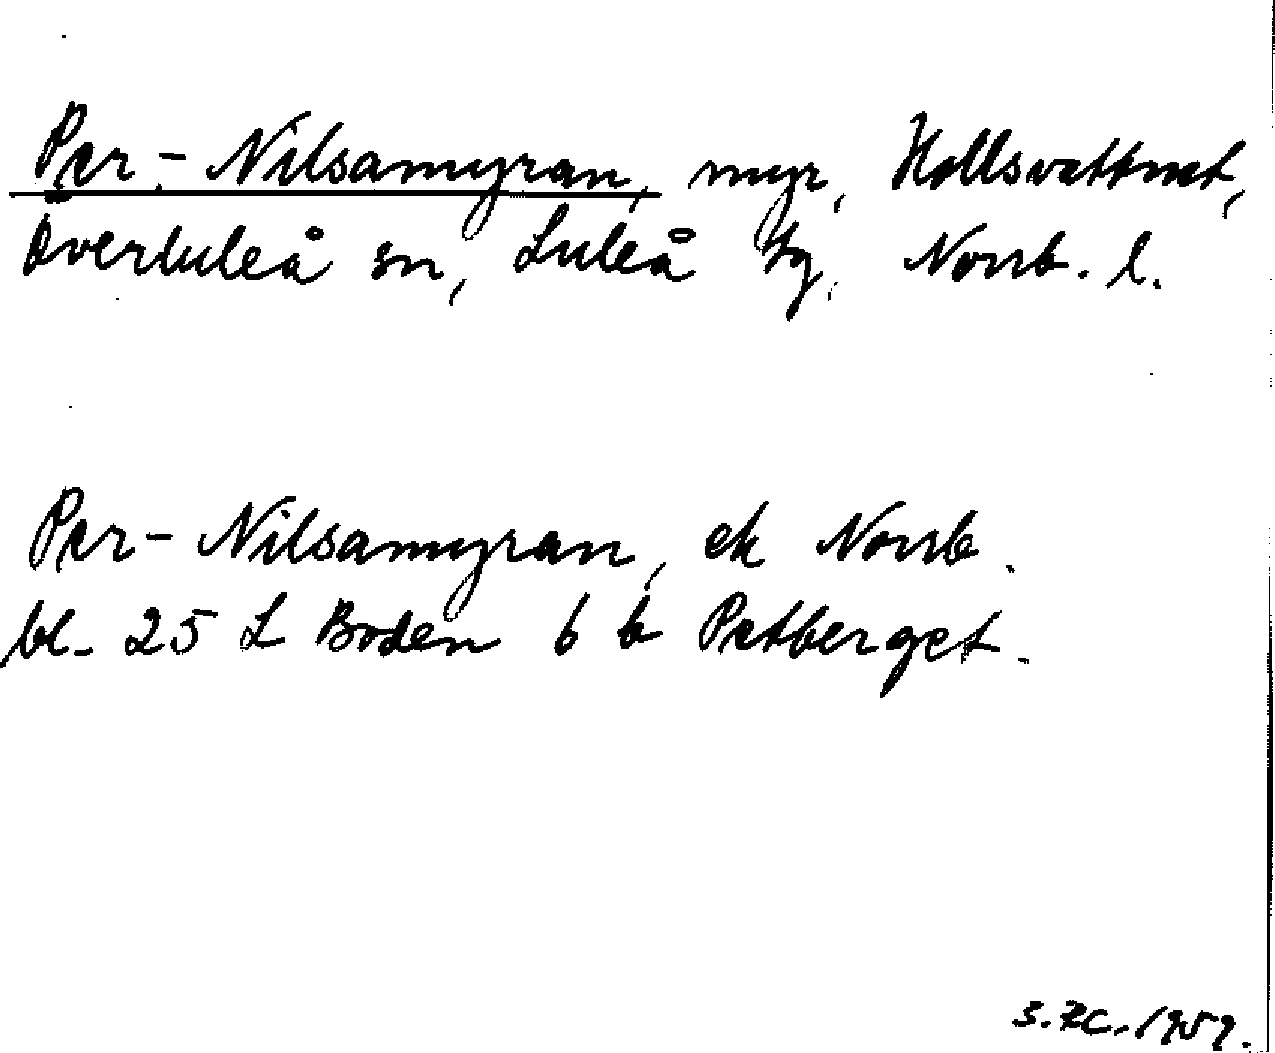 Per-Nilsamyran, myr, Hållsvattnet,
Överluleå sn, Luleå tg, Norrb. l.
Per-Nilsamyran, ek Norrb.
bl. 25 L Boden 6 b Petberget.
1959.